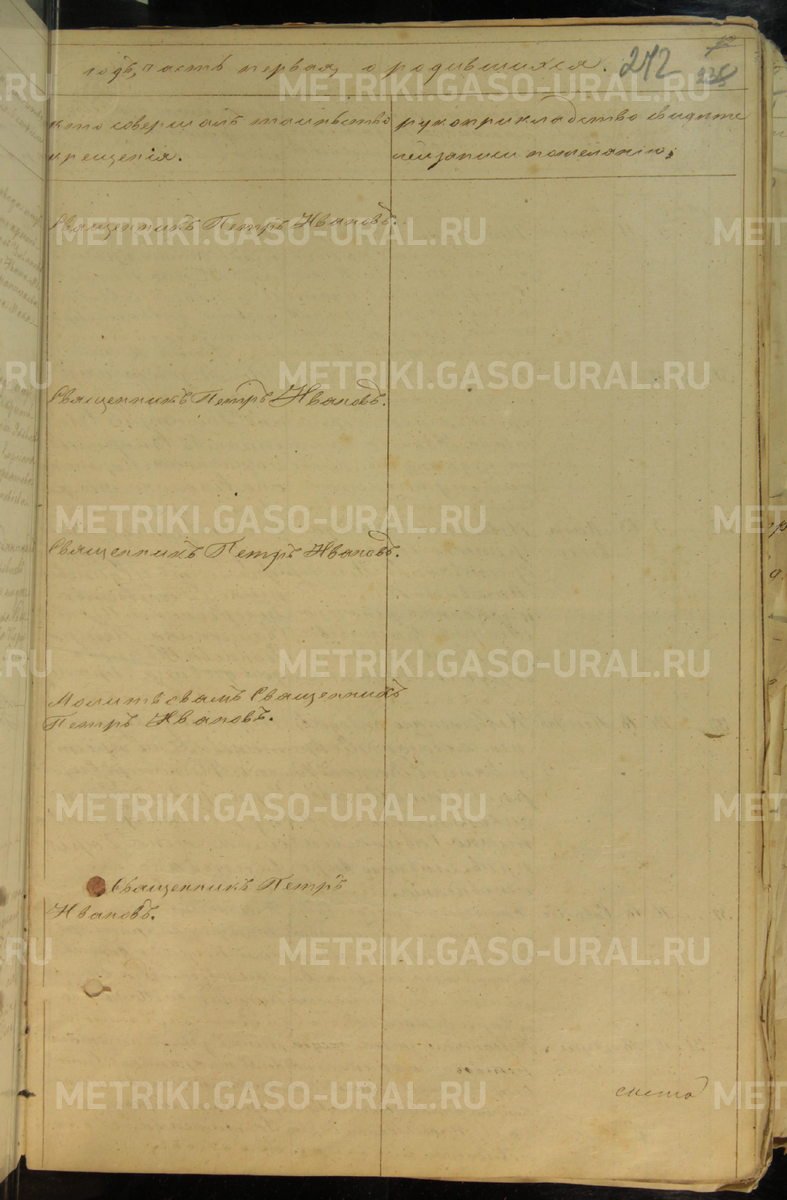 годъ, часть первая, о родившихся. 272
кто совершалъ таинство
крещенія.
рукоприкладство свидѣте
лей записи по желанію.
Священникъ Петръ Ивановъ.
Священникъ Петръ Ивановъ.
Священникъ Петръ Ивановъ.
Молитвовалъ Священникъ
Петръ Ивановъ.
Священникъ Петръ
Ивановъ.
METRIKI.GASO-URAL.RU